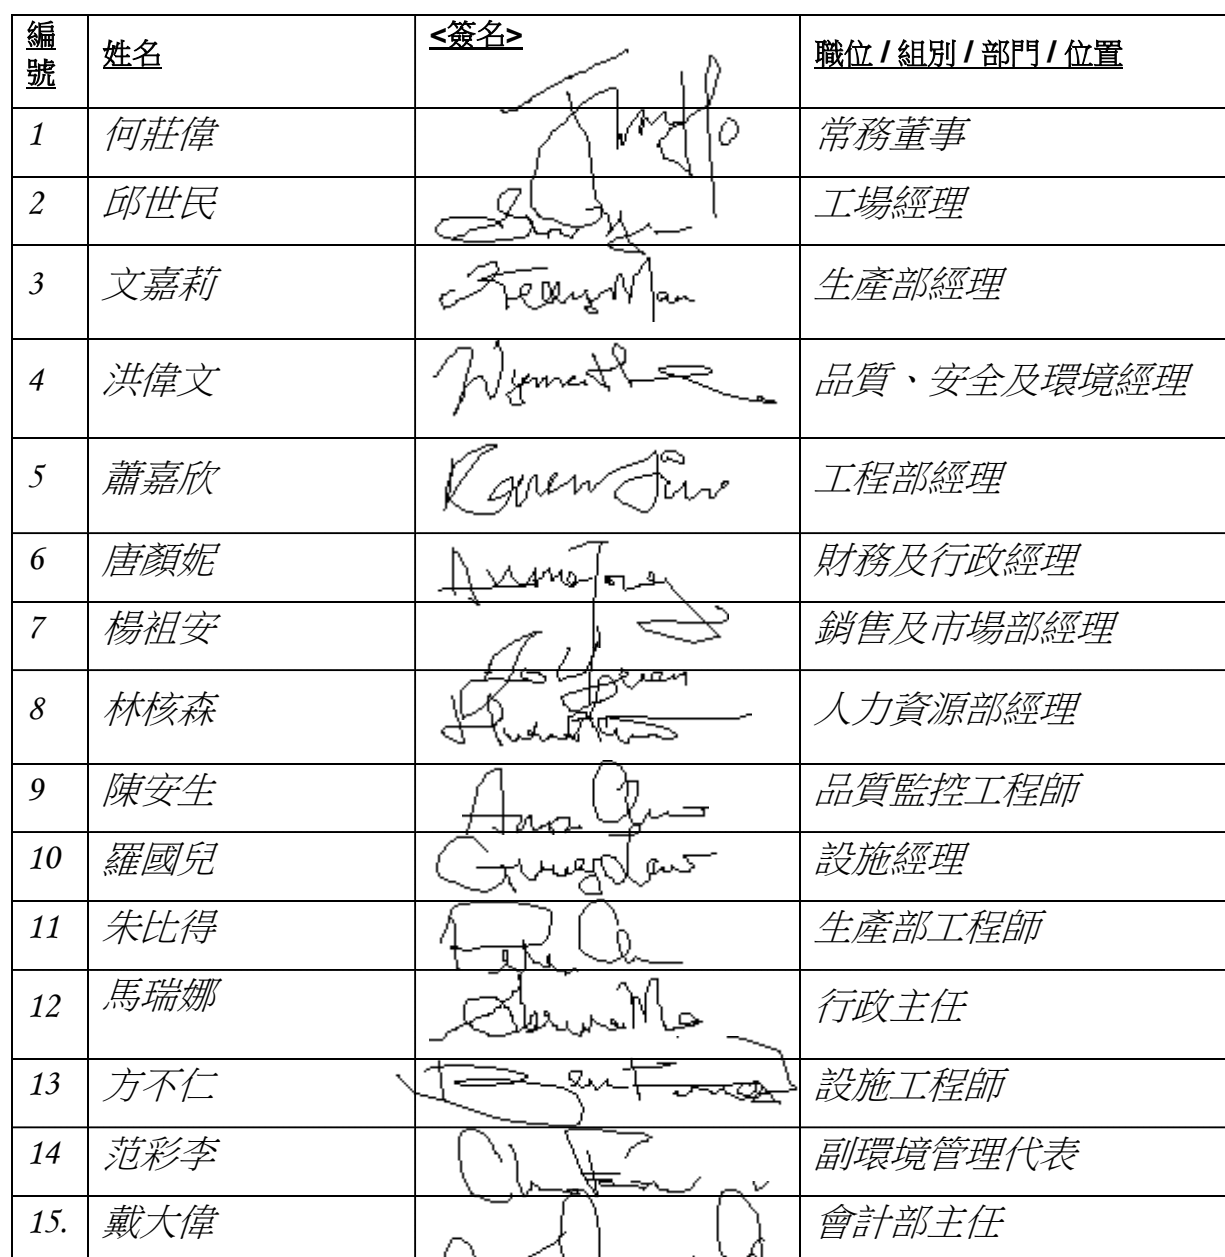 編號 姓名 <簽名> 職位 / 組別 / 部門 / 位置
1 何莊偉 常務董事
2 邱世民 工場經理
3 文嘉莉 Kelly Man 生產部經理
4 洪偉文 品質、安全及環境經理
5 蕭嘉欣 Karen Siu 工程部經理
6 唐顏妮 財務及行政經理
7 楊祖安 銷售及市場部經理
8 林核森 人力資源部經理
9 陳安生 品質監控工程師
10 羅國兒 設施經理
11 朱比得 生產部工程師
12 馬瑞娜 行政主任
13 方不仁 設施工程師
14 范彩李 副環境管理代表
15. 戴大偉 會計部主任